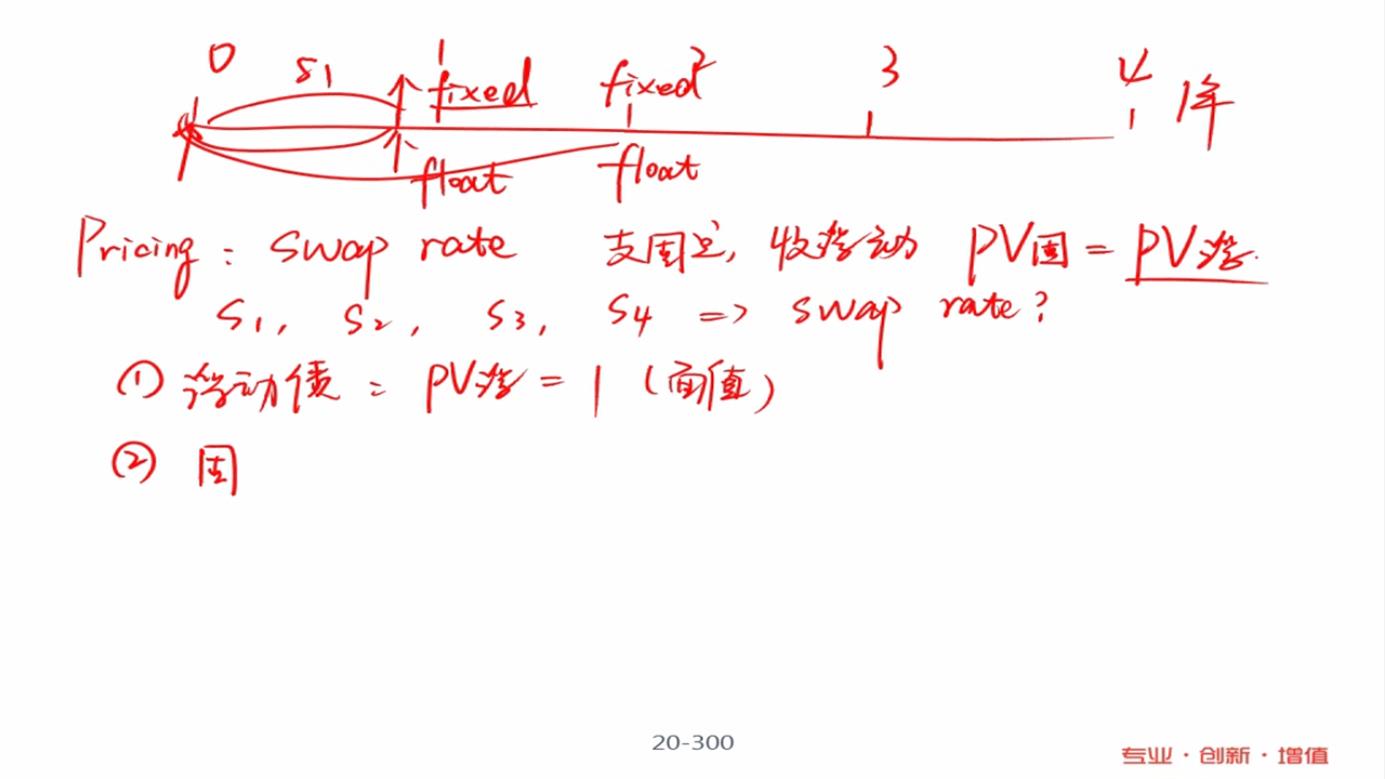 0 S1 1 2 3 4
fixed fixed 1年
float float
Pricing : swap rate 支固定, 收浮动 PV固 = PV浮.
S1, S2, S3, S4 => swap rate ?
① 浮动债 : PV浮 = 1 (面值)
② 固
20-300
专业·创新·增值